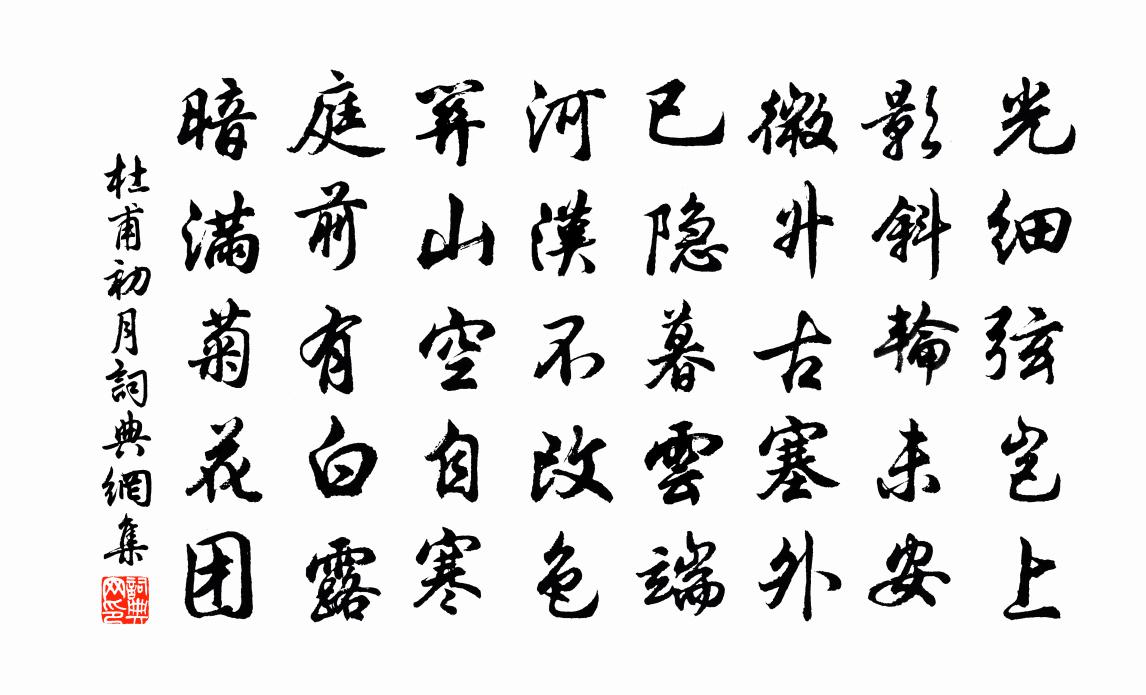 光细弦岂上
影斜輪未安
微升古塞外
已隐暮雲端
河漢不改色
関山空自寒
庭前有白露
暗满菊花团
杜甫初月詞典網集
詞典网印